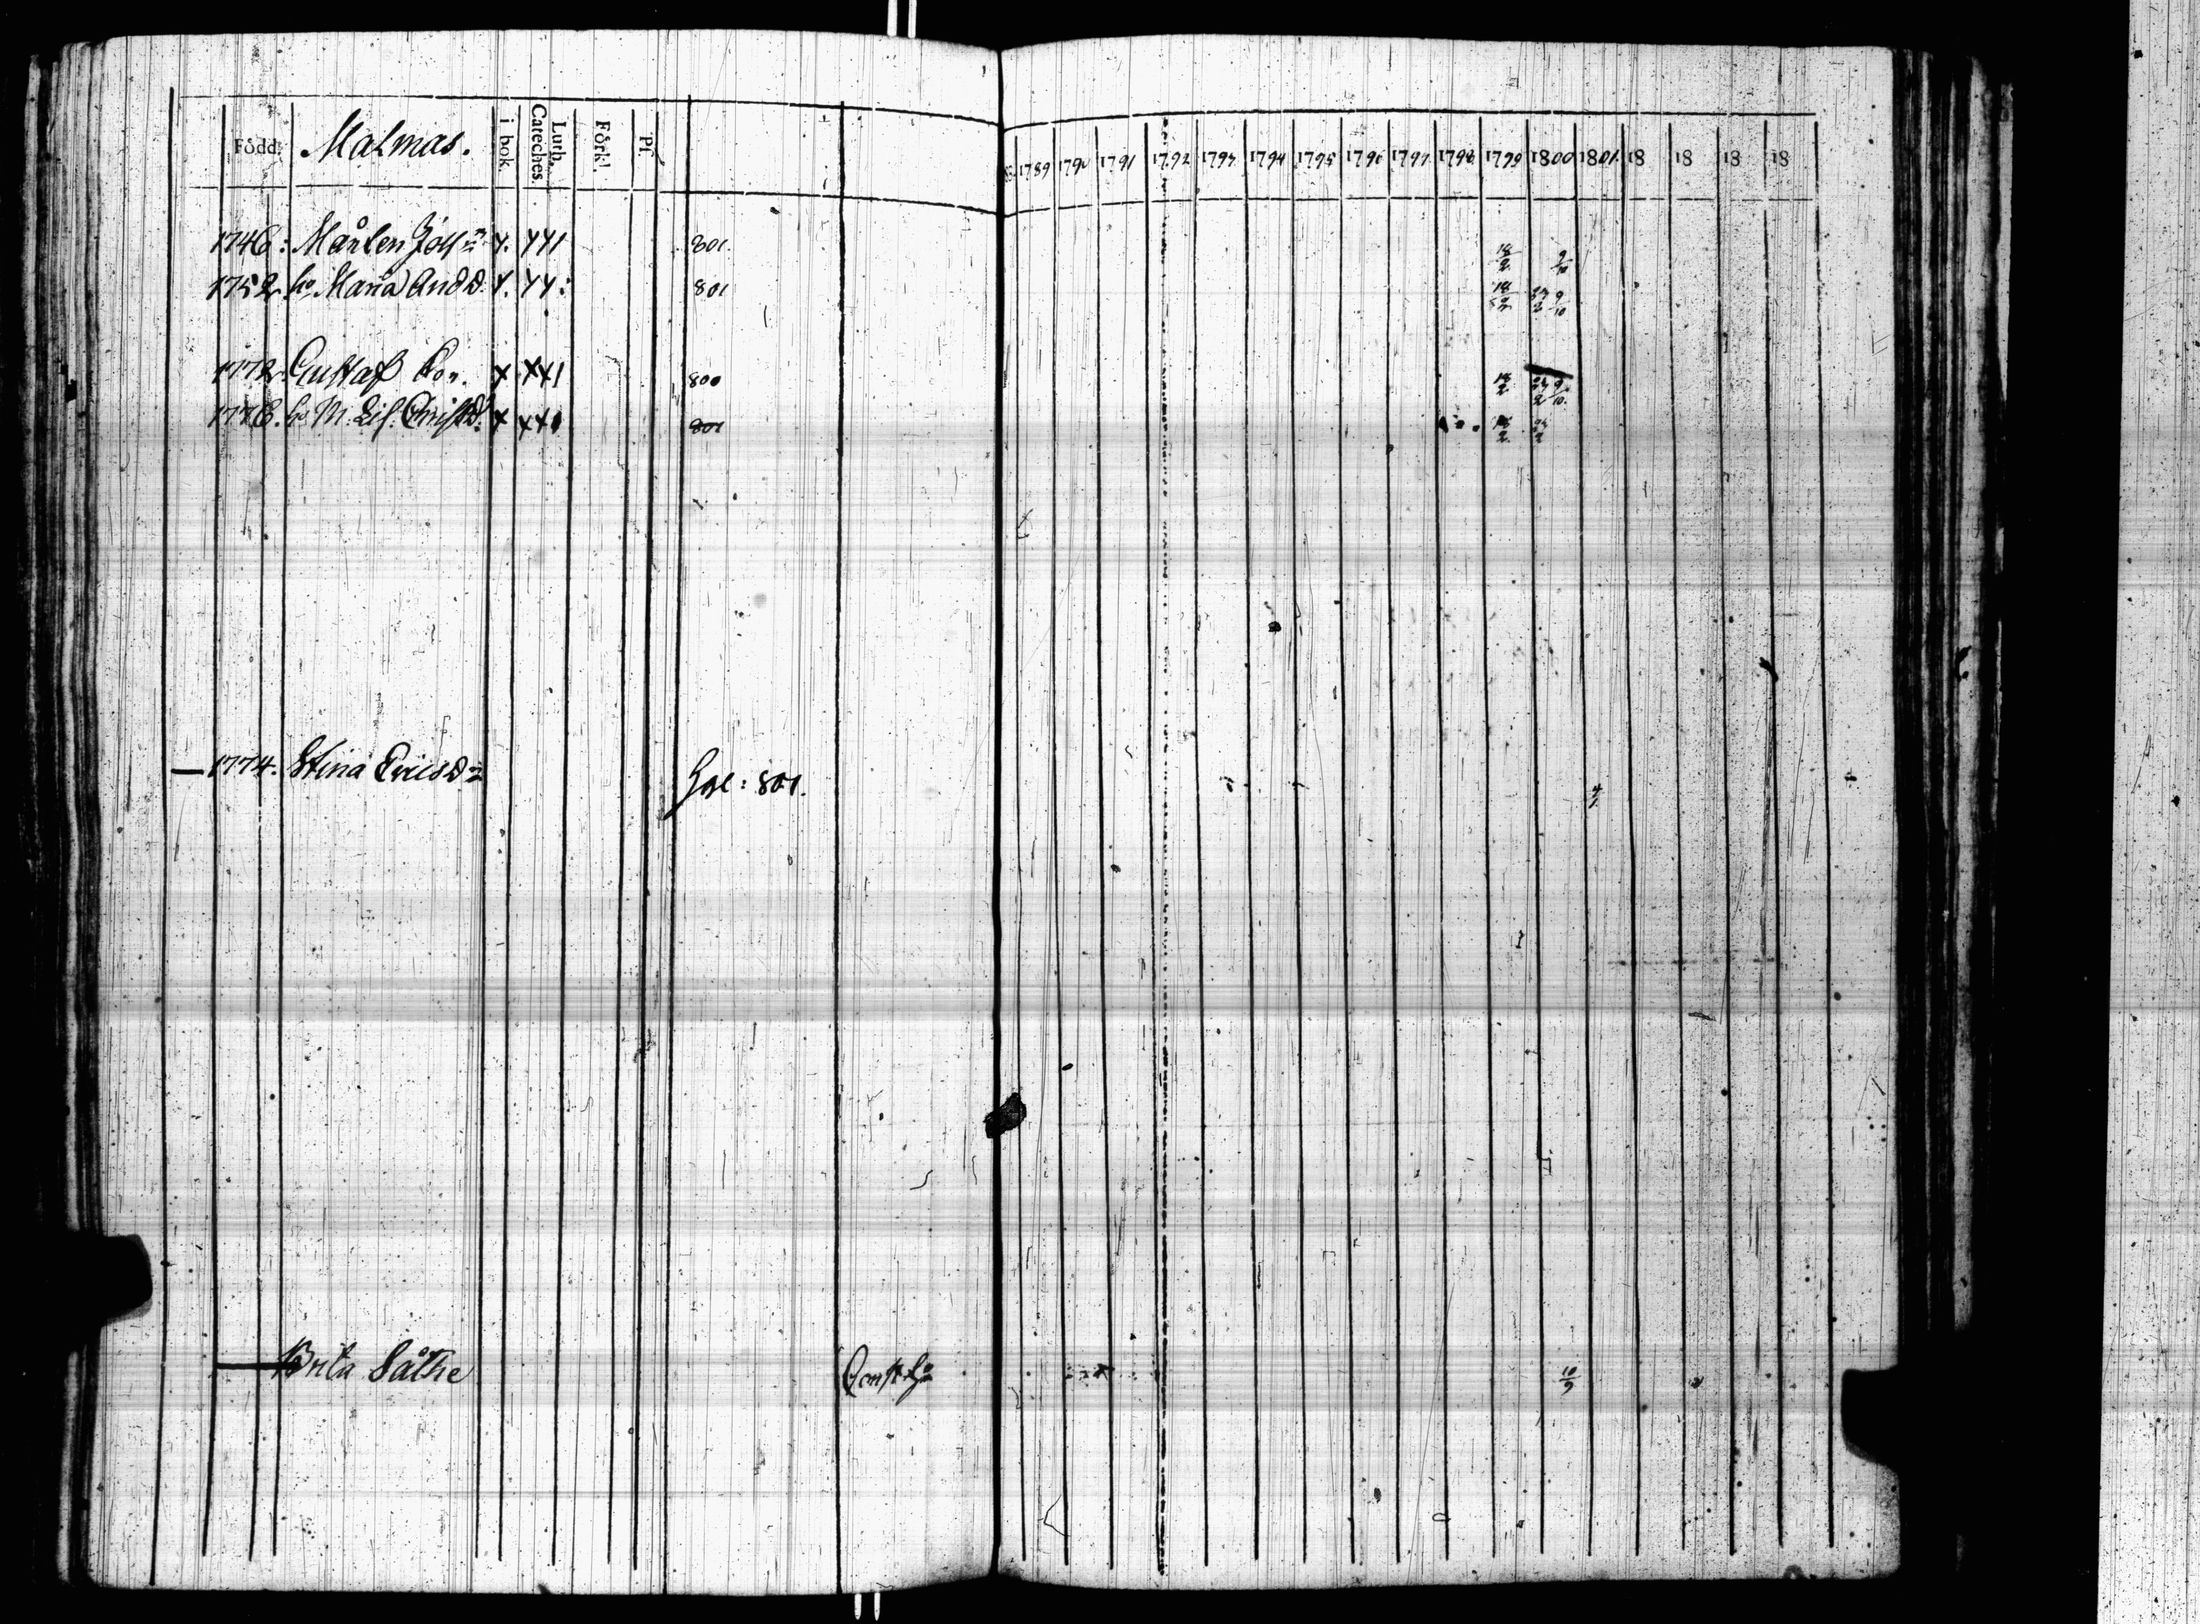 Född. Malmas. i bok. Luth. Cateches. Förkl. Pf. 1789 1790 1791 1792 1793 1794 1795 1796 1797 1798 1799 1800 1801. 18 18 18 18
1746: Mårten x. xx1 801. 18/2 9/10
1752 ho Maria And D. x. xx: 801 18/2 9/10
1772 Gustaf x xx1 800 18/2 9/10
1776. ho M: Lis: Christ D: x xx1 801 2
— 1774. Stina Erics D 801. 4/1
— Brita Såthe 10/9